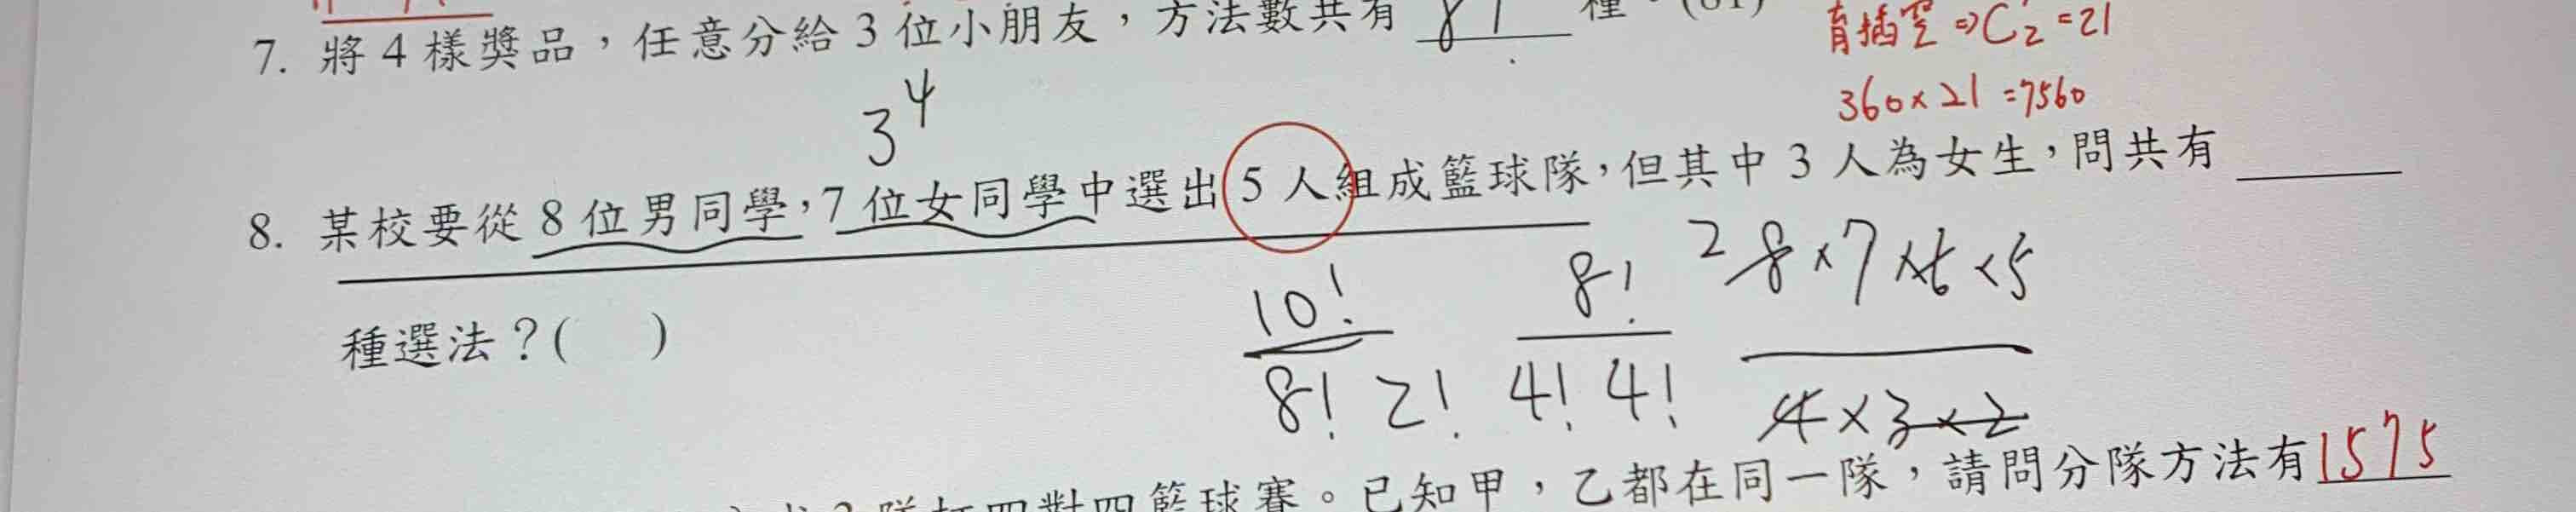 7. 將4樣獎品，任意分給3位小朋友，方法數共有 81 種。(81)
3⁴
盲插空⇒C₂=21
360×21=7560
8. 某校要從8位男同學，7位女同學中選出5人組成籃球隊，但其中3人為女生，問共有
種選法？( )
10!/8!2! 8!/4!4! 2 8×7×6×5/4×3×2
隊打四對四籃球賽。已知甲，乙都在同一隊，請問分隊方法有1575